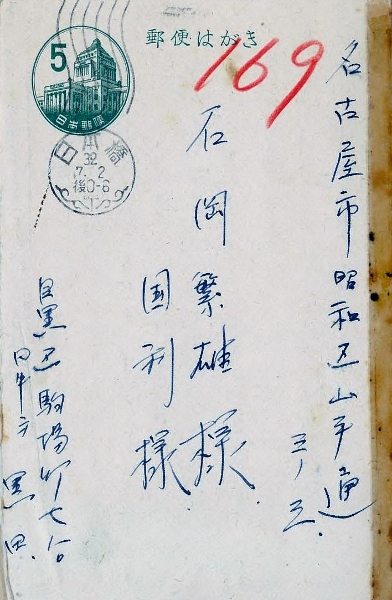 郵便はがき
5
日本郵便
日本橋
32
7.2
後0-6
169
名古屋市昭和区山手通
三ノ三
石岡繁雄様
国利様
目黒区駒場町七六
田中方
黒田